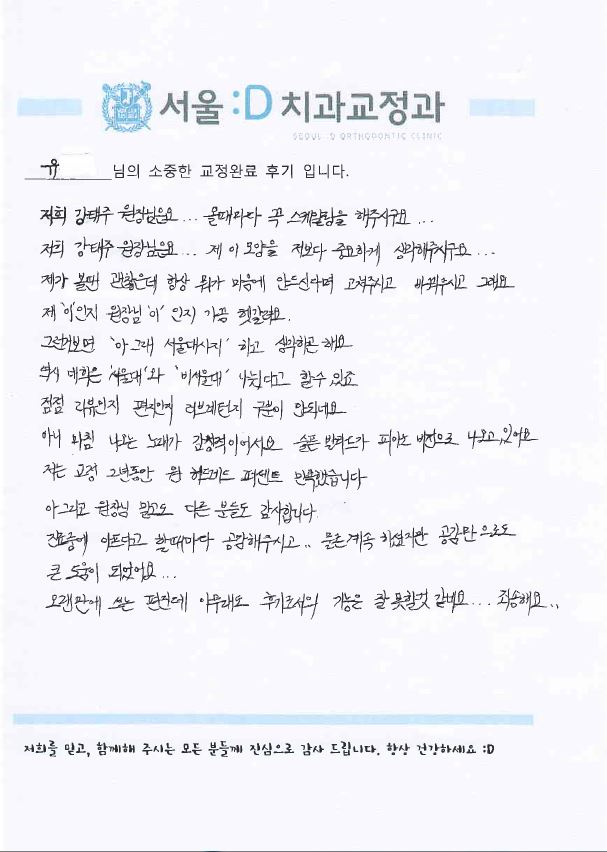 서울 :D 치과교정과
SEOUL :D ORTHODONTIC CLINIC
유 님의 소중한 교정완료 후기 입니다.
저희 강태주 원장님은요... 올때마다 꼭 스케일링을 해주시구요...
저희 강태주 원장님은요... 제 이 모양을 저보다 중요하게 생각해주시구요...
제가 볼땐 괜찮은데 항상 뭐가 마음에 안드신다며 고쳐주시고 바꿔주시고 그래요
제 '이'인지 원장님 '이' 인지 가끔 헷갈려요.
그런거보면 '아 그래 서울대시지' 하고 생각하곤 해요
역시 대학은 '서울대'와 '비서울대' 나뉜다고 할수 있죠
점점 리뷰인지 편지인지 러브레턴지 구분이 안되네요
아니 마침 나오는 노래가 감청력이어서요 슬픈 발라드가 피아노 버전으로 나오고 있어요
저는 교정 2년동안 원 헌드레드 퍼센트 만족했습니다
아 그리고 원장님 말고도 다른 분들도 감사합니다
진료중에 아프다고 할때마다 공감해주시고.. 물론 계속 하셨지만 공감만으로도
큰 도움이 되었어요...
오랜만에 쓰는 편진데 아무래도 후기로서의 기능은 잘 못할것 같네요... 죄송해요..
저희를 믿고, 함께해 주시는 모든 분들께 진심으로 감사 드립니다. 항상 건강하세요 :D